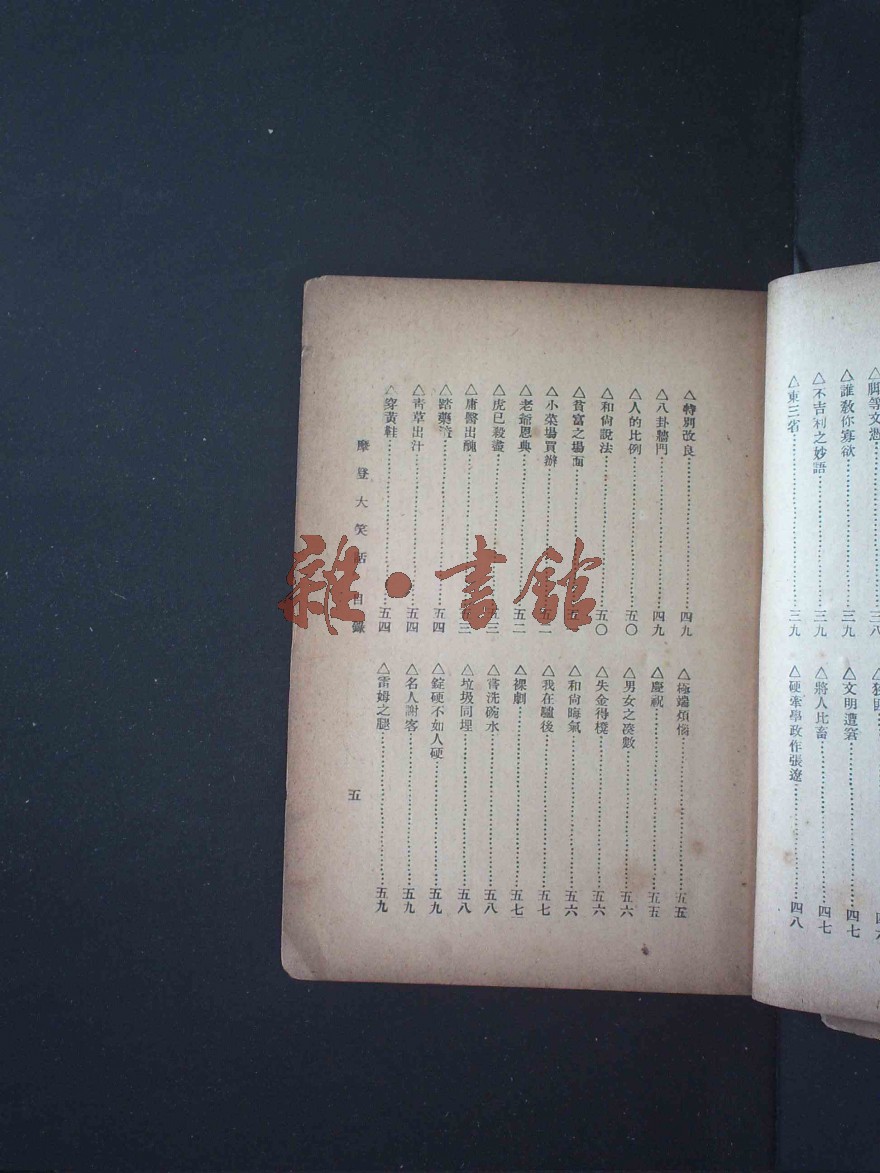 △脚等文憑……三八
△誰敎你寡欲……三九
△不吉利之妙語……三九
△東三省……三九
△文明遭窘……四七
△將人比畜……四七
△硬牽學政作張遼……四八
△特別改良……四九
△八卦牆門……四九
△人的比例……五〇
△和尙說法……五〇
△貧富之場面……五
△小菜場買辦
△老爺恩典……五二
△虎已殺盡……五三
△庸醫出醜……五三
△踏藥渣……五四
△靑草出汁……五四
△穿黃鞋……五四
△極端煩惱……五五
△慶祝……五五
△男女之湊數……五六
△失金得櫈……五六
△和尙晦氣……五六
△我在驢後……五七
△裸劇……五七
△嘗洗碗水……五八
△垃圾同埋……五八
△錠硬不如人硬……五九
△名人謝客……五九
△雷姆之腿……五九
摩登大笑話 目錄
五
雜·書館